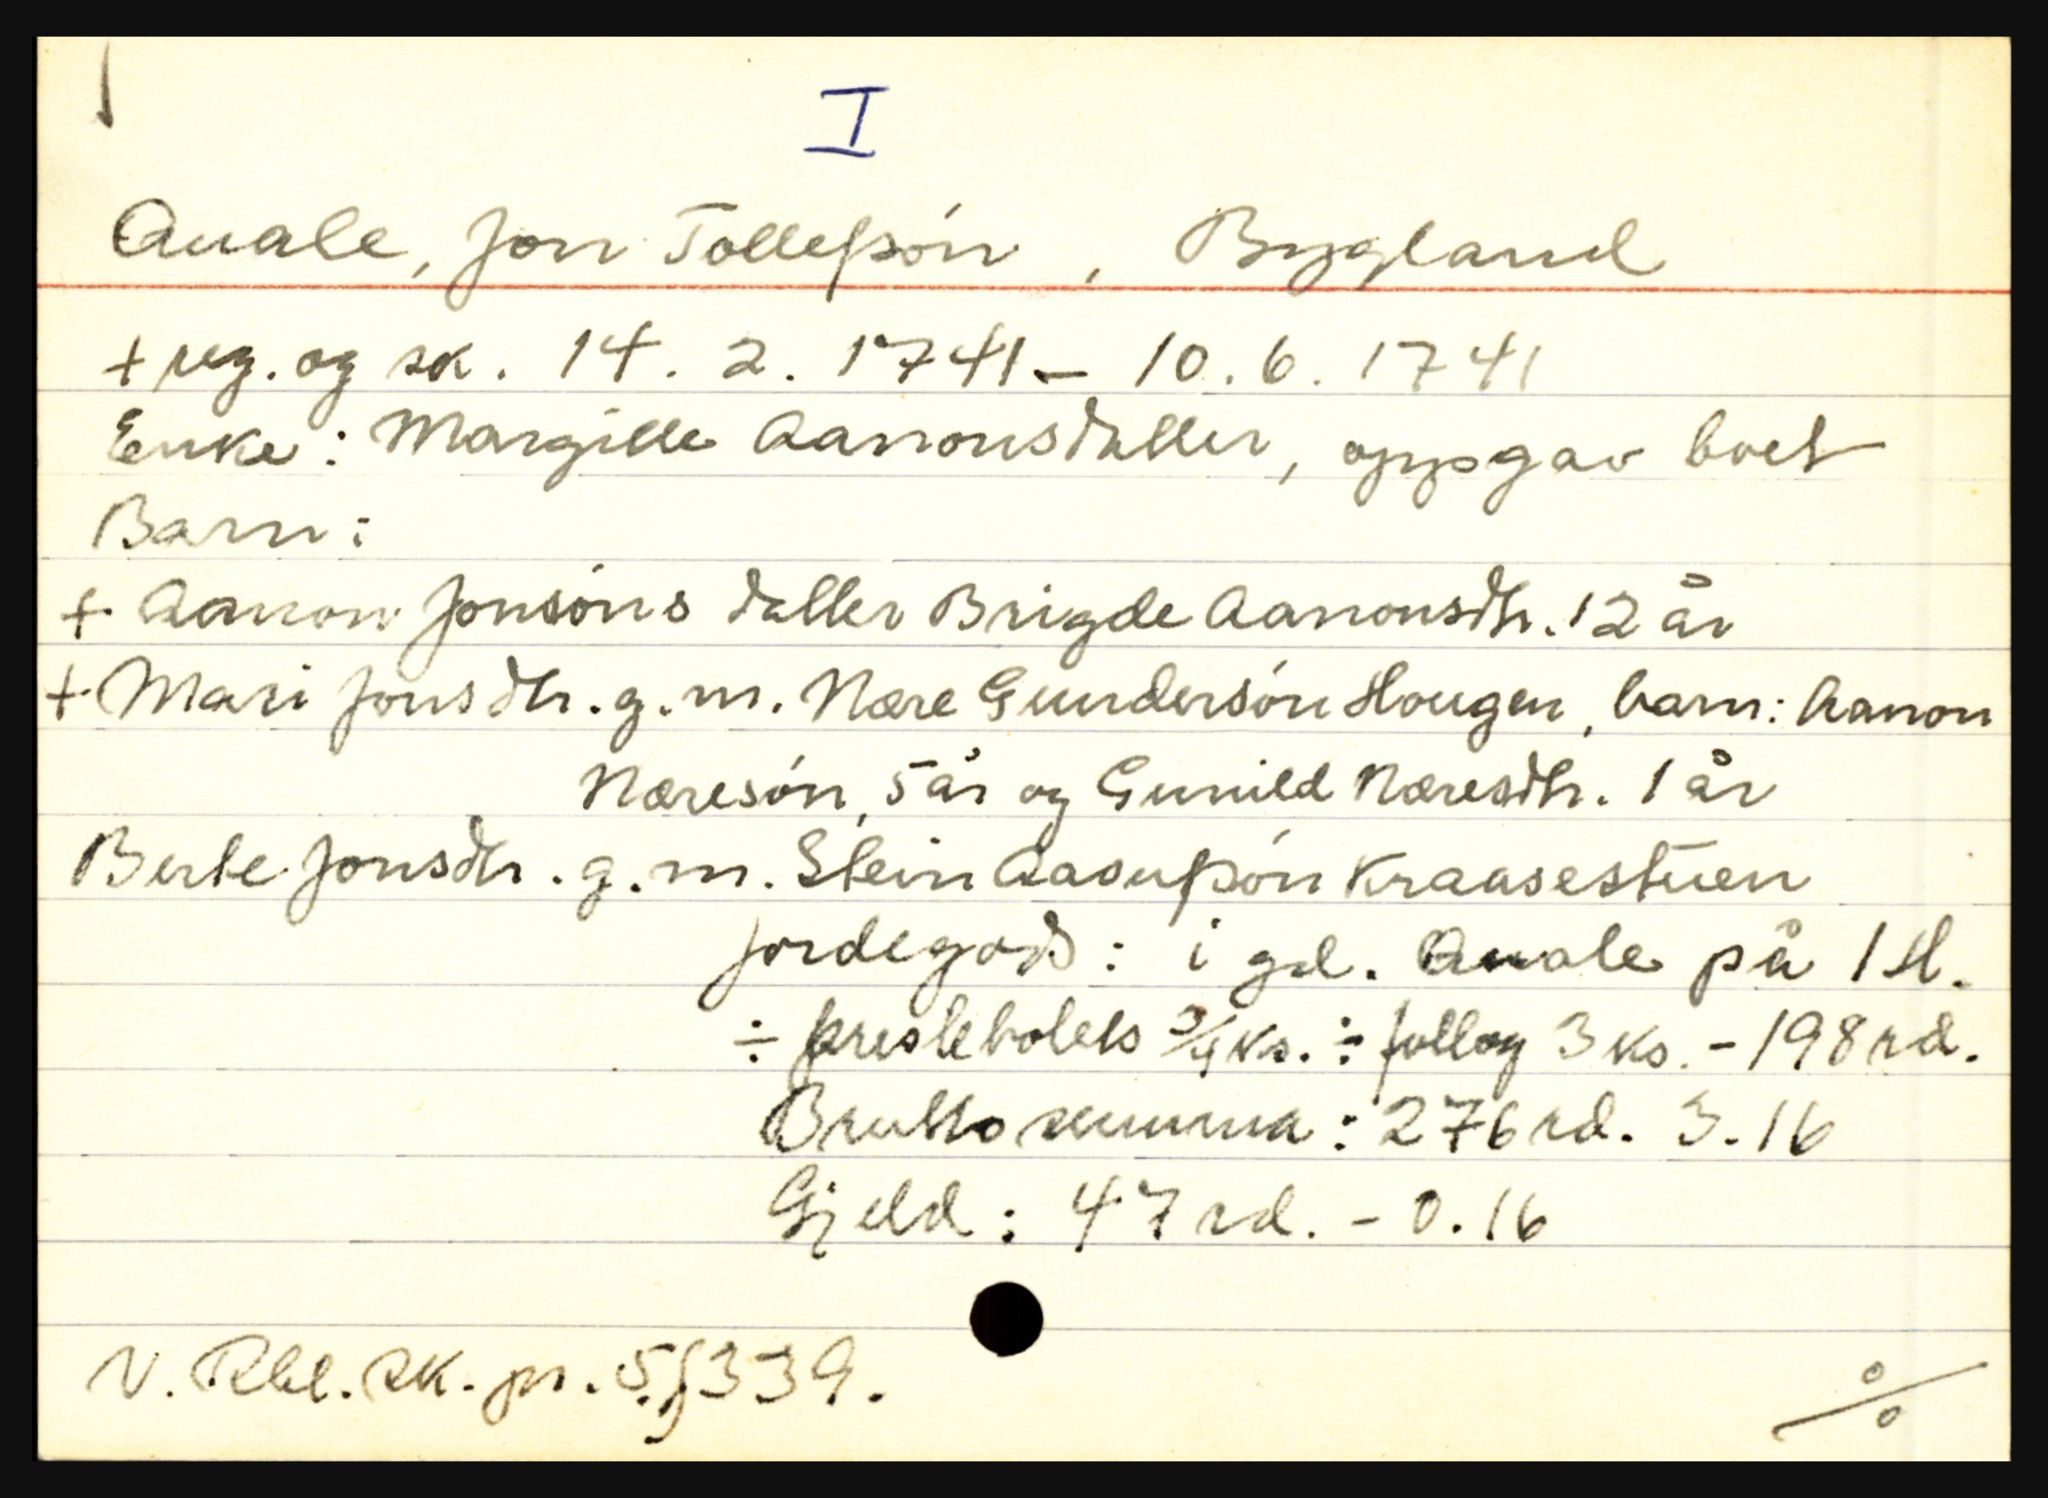 I
Auale, Jon Tollefsón, Bygland
+ reg. og sk. 14. 2. 1741 - 10. 6. 1741
Enke: Margille Aanonsdatter, oppgav boet
Barn:
+ Aanon Jonsóns datter Brigde Aanonsdtr. 12 år
+ Mari Jonsdtr. g. m. Nære Gundersón Hougen, barn: Aanon
Næresón, 5 år og Gunild Næresdtr. 1 år
Berte Jonsdtr. g. m. Stein Aasufsón Kraasestuen
Jordegods: i gd. Auale på 1 H.
÷ prestebolets 3/4 ks. ÷ follog 3 ks. - 198 rd.
Brutto summa: 276 rd. 3. 16
Gjeld: 47 rd. - 0. 16
V. Rbl. sk. pr. 5, f 339.